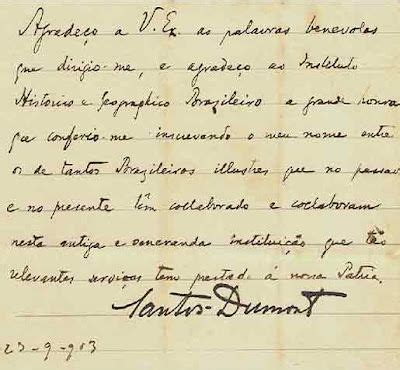 Agradeço a V. Ex. as palavras benevolas
que dirigio-me, e agradeço ao Instituto
Historico e Geographico Brazileiro a grande honra
que conferio-me inscrevendo o meu nome entre
os de tantos Brazileiros illustres que no passado
e no presente têm collaborado e collaboram
nesta antiga e veneranda instituição que tão
relevantes serviços tem prestado á nossa Patria.
Santos-Dumont
23-9-903